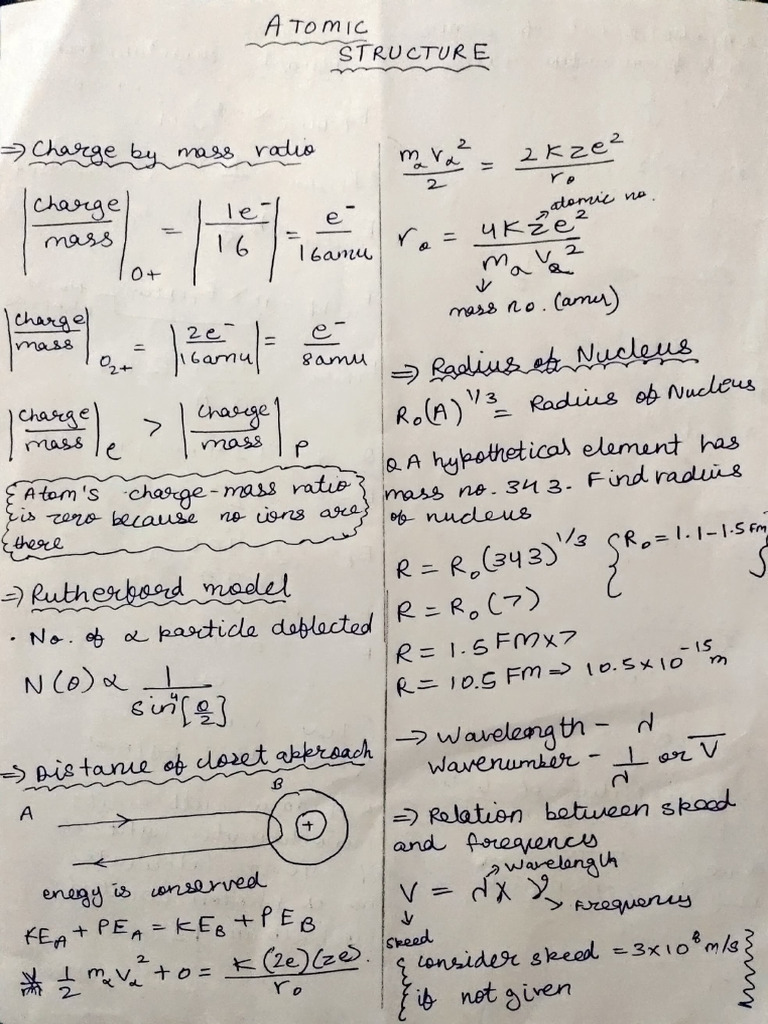 ATOMIC
STRUCTURE
⇒ Charge by mass ratio
|charge/mass|O+ = |1e⁻/16| = e⁻/16amu
|charge/mass|O2+ = |2e⁻/16amu| = e⁻/8amu
|charge/mass|e > |charge/mass|p
Atom's charge-mass ratio
is zero because no ions are
there
⇒ Rutherford model
• No. of α particle deflected
N(θ) α 1/sin⁴[θ/2]
⇒ Distance of closet approach
A B
+
enegy is conserved
KE_A + PE_A = KE_B + PE_B
* 1/2 mαvα² + 0 = K(2e)(ze)/r₀
mαvα²/2 = 2Kze²/r₀
r₀ = 4Kze²/mαvα²
atomic no.
mass no. (amu)
⇒ Radius of Nucleus
R₀(A)^1/3 = Radius of Nucleus
Q A hypothetical element has
mass no. 343. Find radius
of nucleus
R = R₀(343)^1/3 {R₀ = 1.1-1.5 FM}
R = R₀(7)
R = 1.5 FM×7
R = 10.5 FM ⇒ 10.5×10⁻¹⁵ m
→ Wavelength - λ
Wavenumber - 1/λ or V̅
⇒ Relation between speed
and frequency
→ Wavelength
V = λ × ν
→ Frequency
↓
speed
{consider speed = 3×10⁸ m/s
if not given}